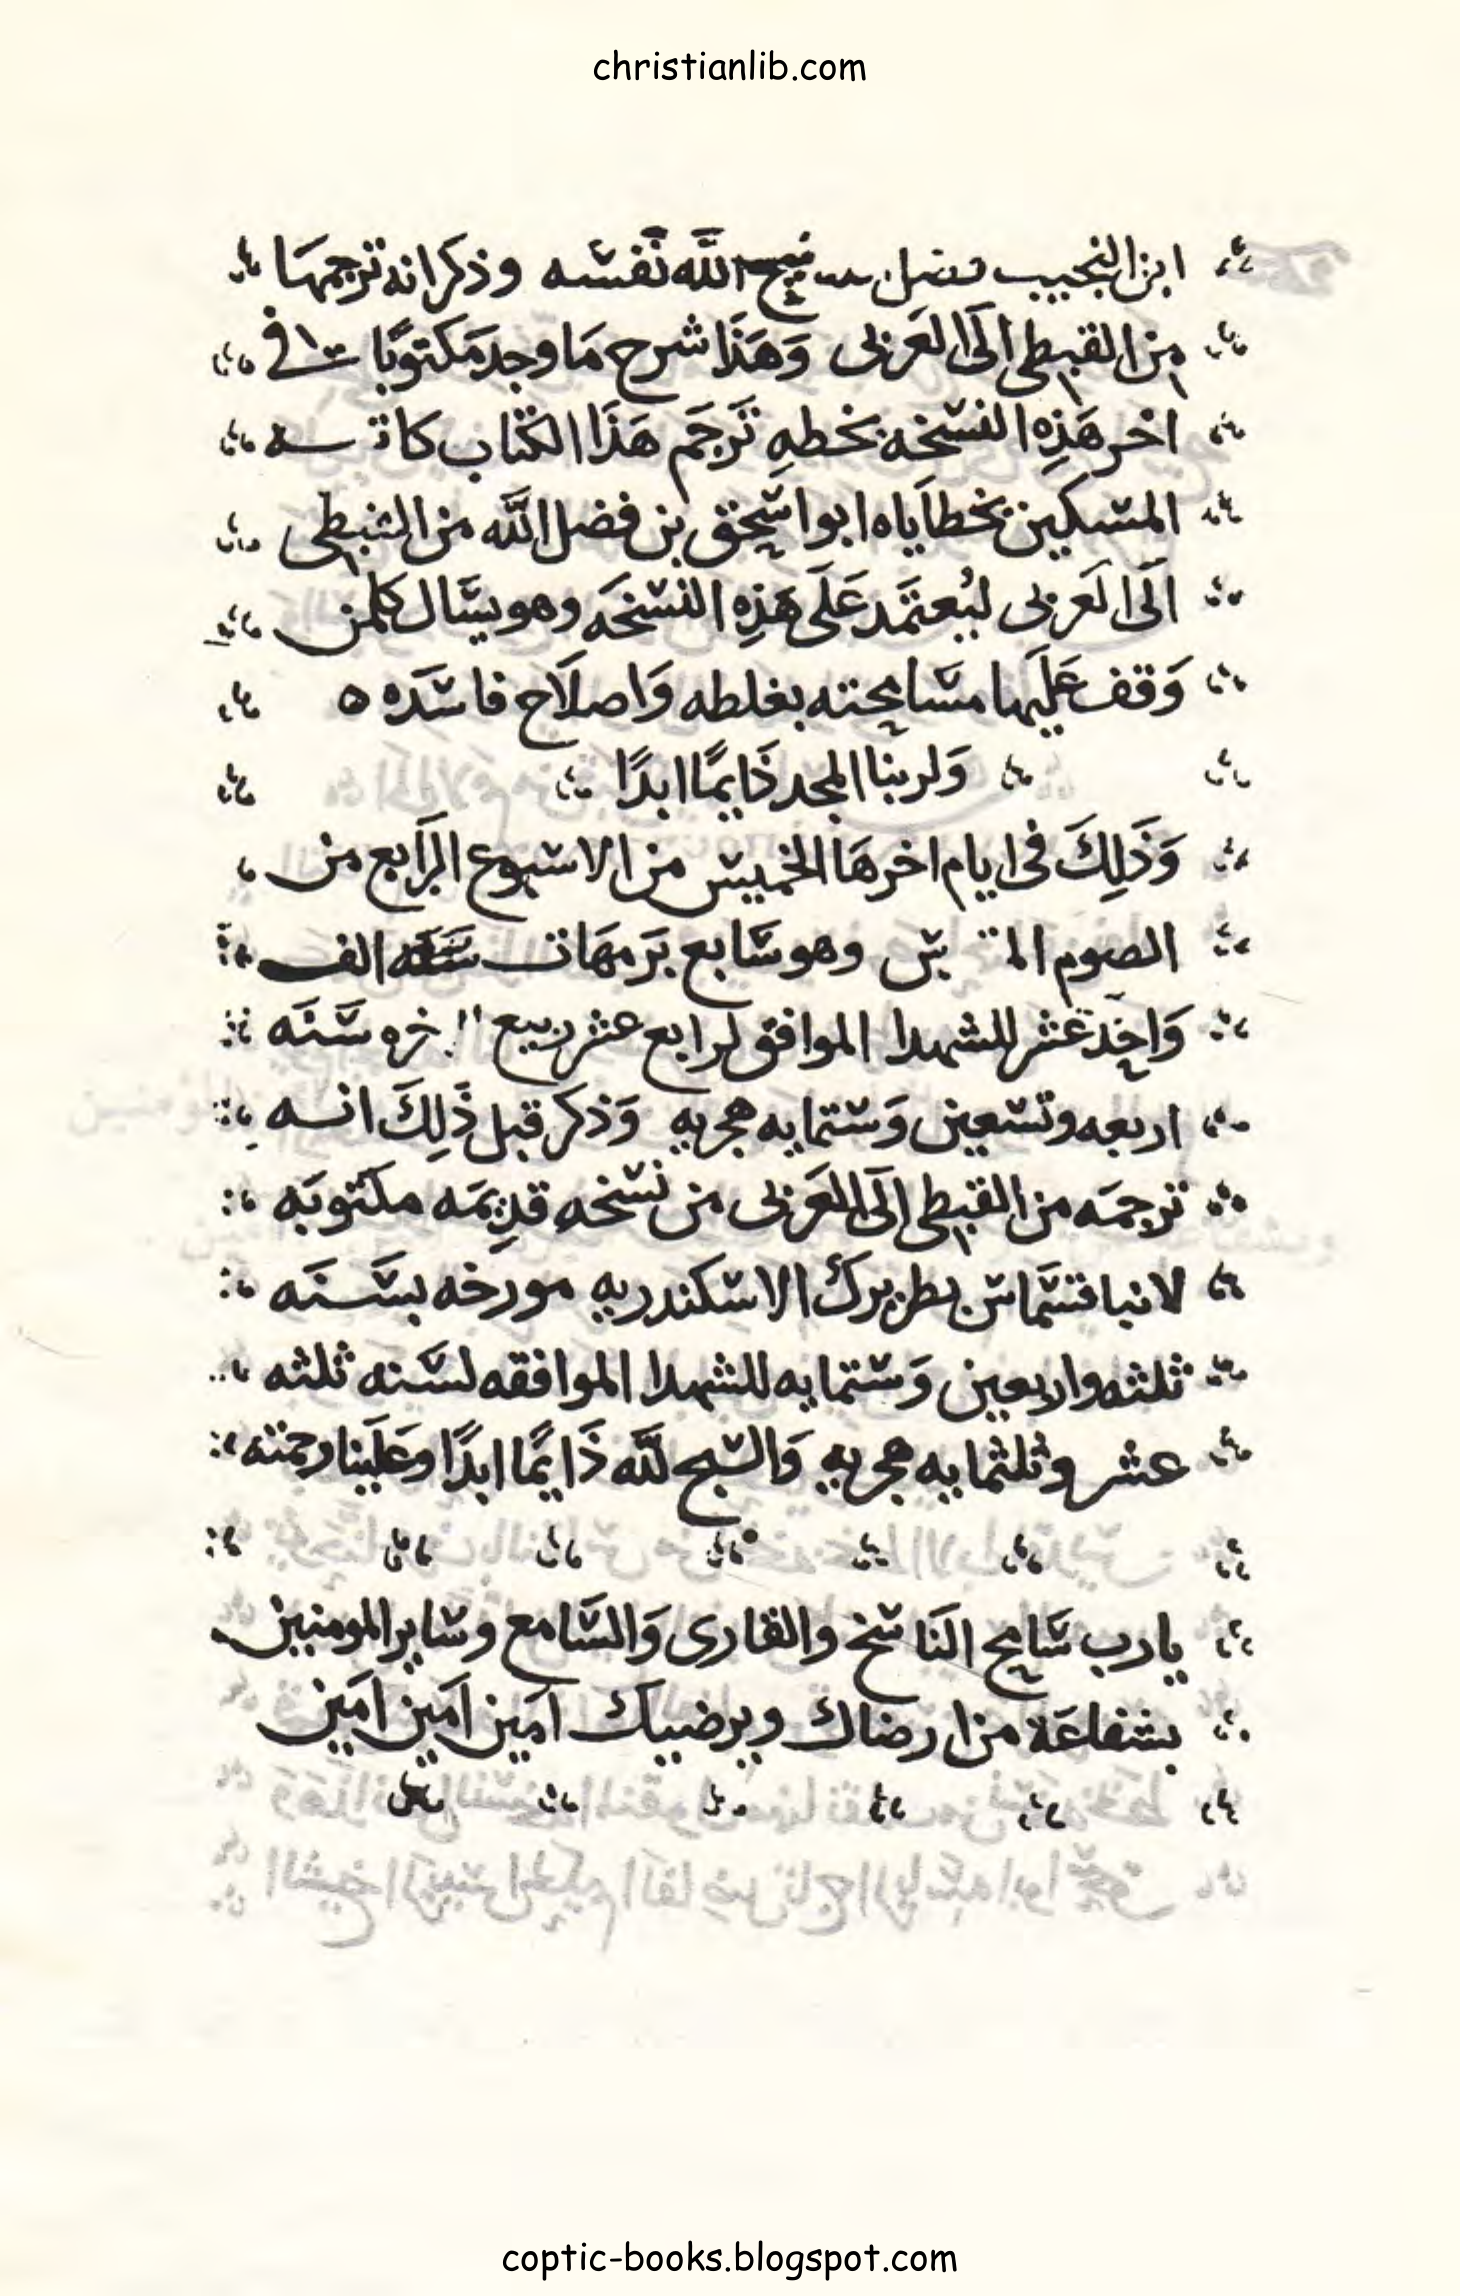 christianlib.com
ابن النجيب نيح الله نفسه وذكر انه ترجمها
من القبطى الَى العَربى وَهَذَا شرح مَا وجد مَكتوبًا فى
اخر هَذِه النسخه بخطهِ تَرجَم هَذَا الكتاب
المسكين بخطاَياه ابوا سحق بن فضل الله من القبطى
الَى العَربى ليُعتمَد عَلَى هَذِه النسخَه وهو يسَال كلمن
وَقف عَليها مسامحته بغلطه وَاصلاَح فاسَده ه
وَلربنا المجد دَايمًا ابدًا
وَذَلِكَ فى ايام اخرهَا الخميس من الاسبوع الرَابع من
الصوم وهو سَابع بَرمهَات سَنَه الف
وَاحِد عَشر للشهدا الموافق لرابع عشر ربيع سَنَه
اربعه وتسعين وَستمايه هجريه وَذكر قبل ذَلِكَ انه
ترجمَه من القبطى الَى العَربى من نسخه قدِيمَه مكتوبَه
لانبا قسمَاس بطريرك الاسكندريه مورخه بسَنَه
ثلثه واربعين وَستمايه للشهدا الموافقه لسَنه ثلثه
عشر وثلثمايه هجريه وَالسبح للَّه دَايمًا ابدًا وعَلَينا رحمته
يارب سَامح النَاسخ والقارى وَالسَامع وساير المومنين
بشفاعَة من ارضاك ويرضيك امَين امَين امَين
coptic-books.blogspot.com